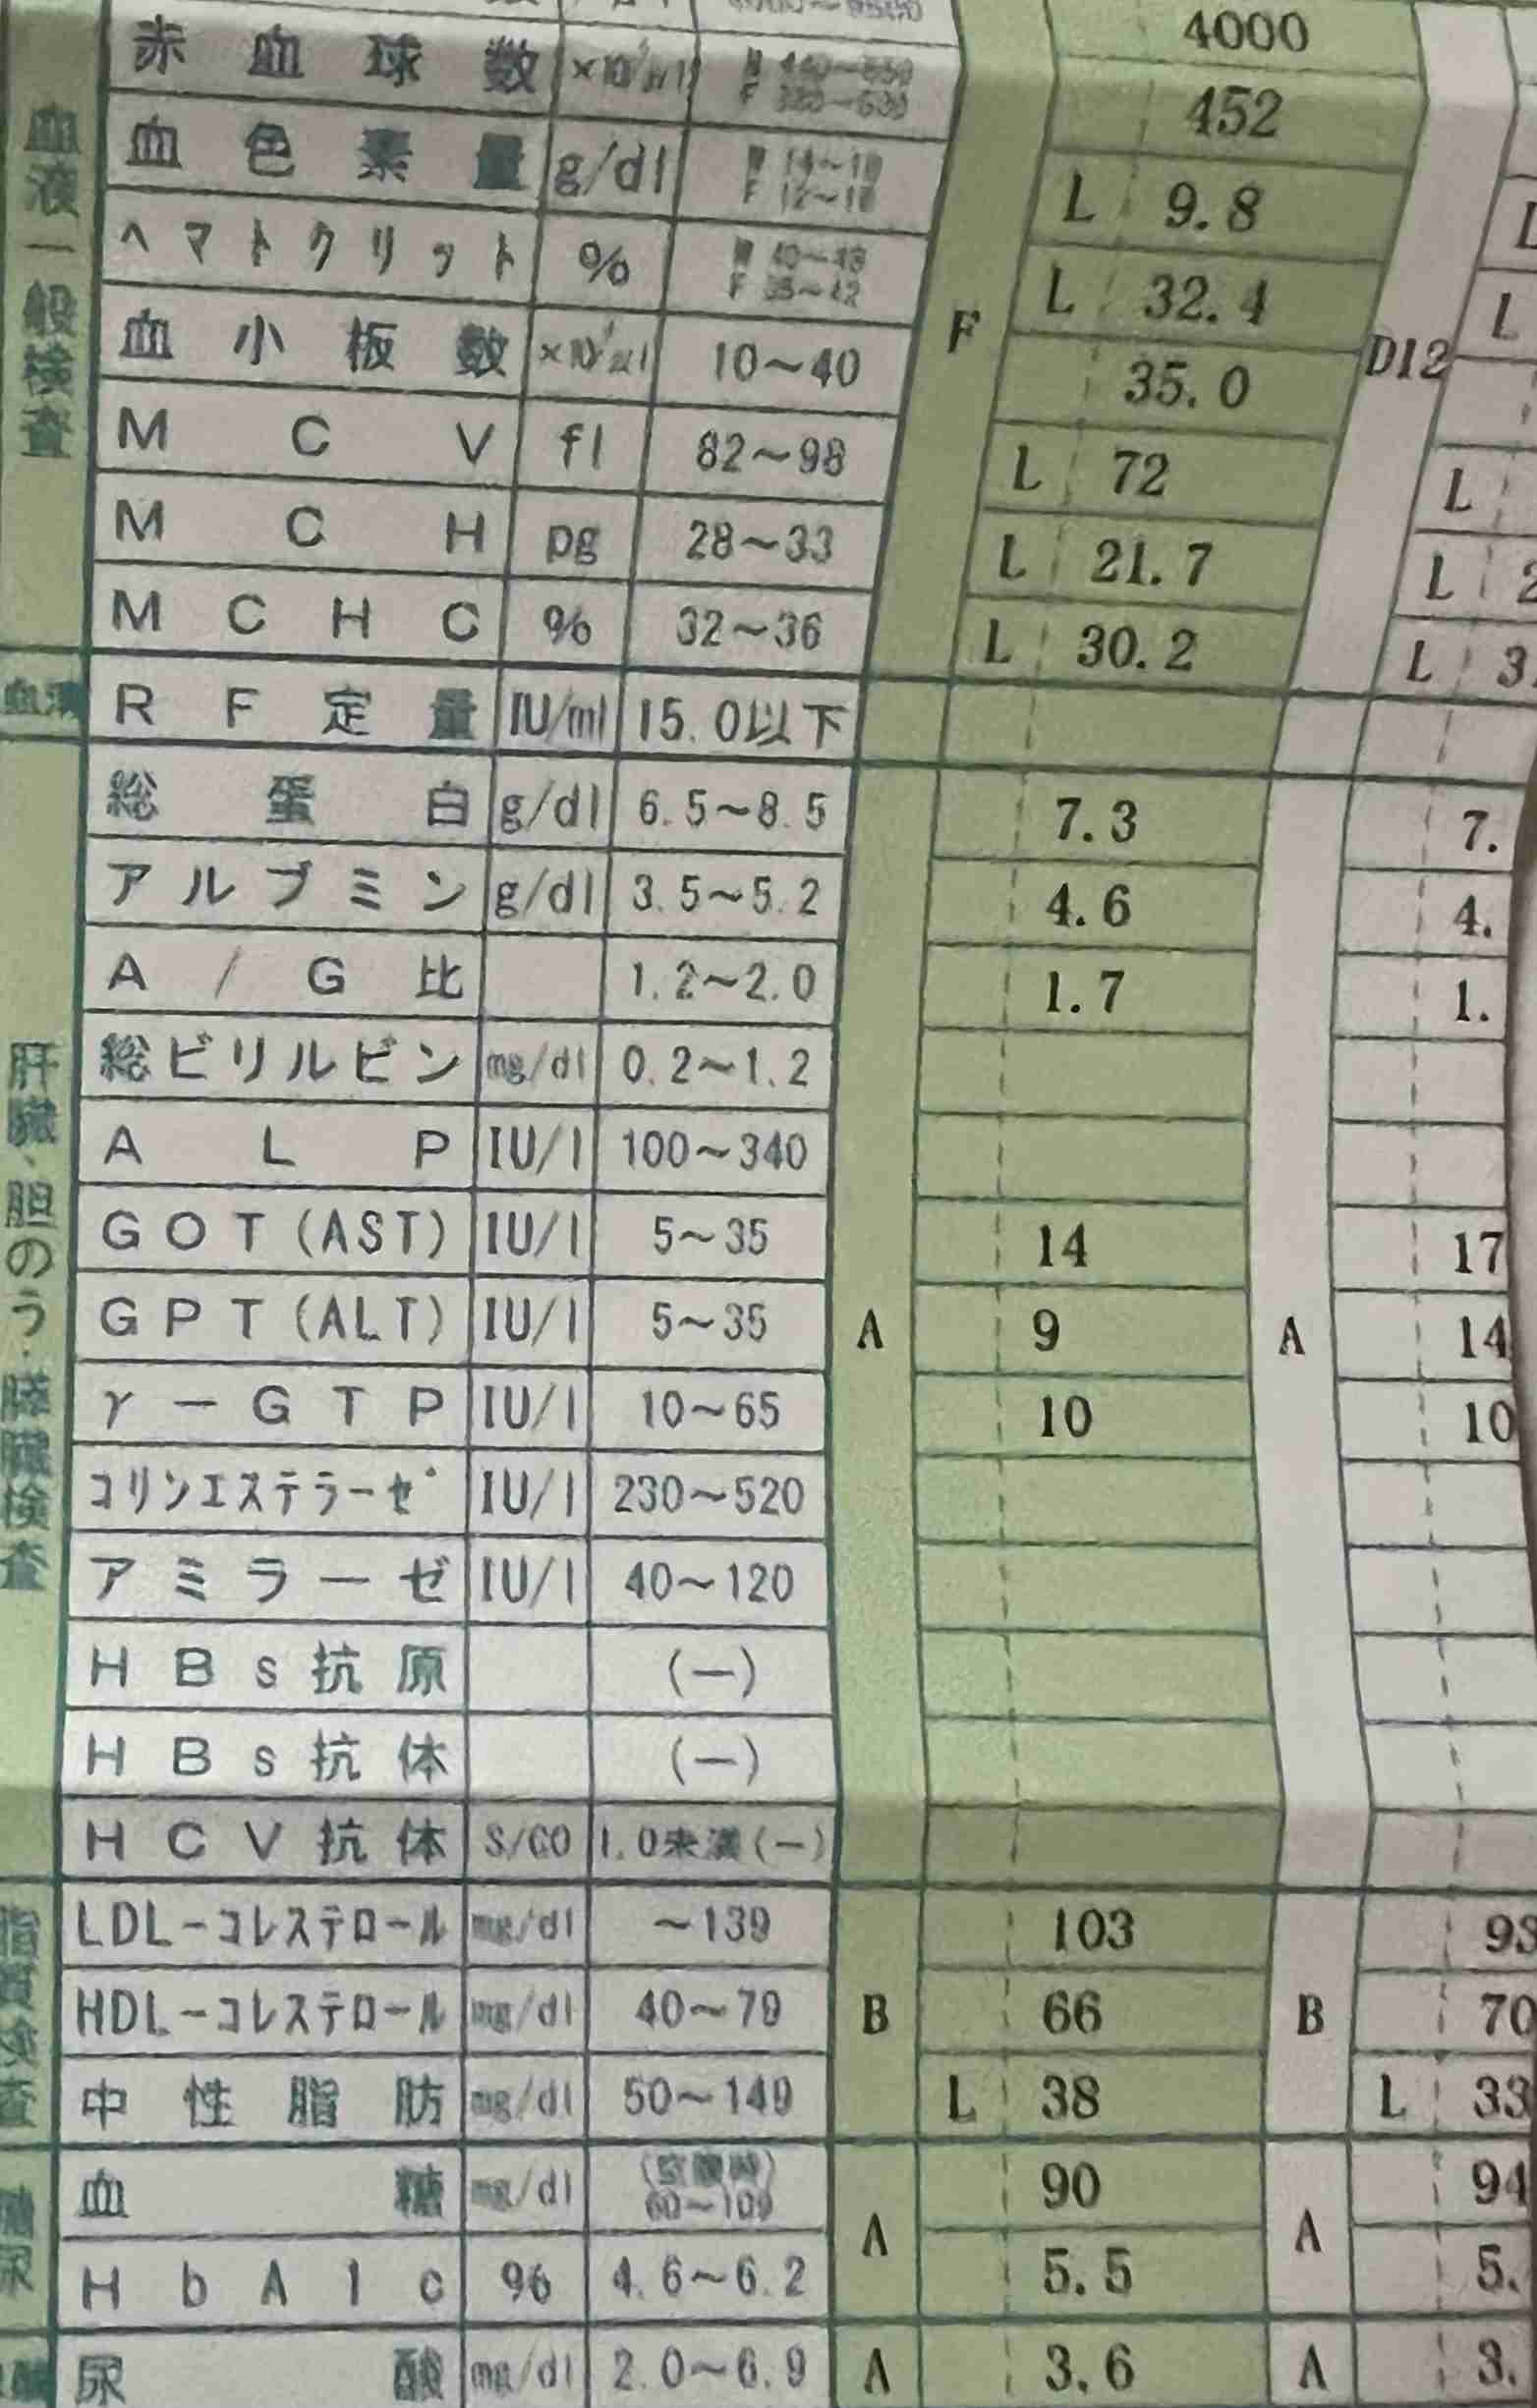 4000
赤血球数 452
血色素量 g/dl L 9.8
ヘマトクリット % L 32.4
血小板数 10～40 F 35.0 D12
MCV fl 82～98 L 72 L
MCH pg 28～33 L 21.7 L 2
MCHC % 32～36 L 30.2 L 3.
RF定量 IU/ml 15.0以下
総蛋白 g/dl 6.5～8.5 7.3 7.
アルブミン g/dl 3.5～5.2 4.6 4.
A/G比 1.2～2.0 1.7 1.
総ビリルビン mg/dl 0.2～1.2
ALP IU/l 100～340
GOT(AST) IU/l 5～35 14 17
GPT(ALT) IU/l 5～35 A 9 A 14
γ-GTP IU/l 10～65 10 10
コリンエステラーゼ IU/l 230～520
アミラーゼ IU/l 40～120
HBs抗原 (-)
HBs抗体 (-)
HCV抗体 S/CO 1.0未満(-)
LDL-コレステロール mg/dl ～139 103 93
HDL-コレステロール mg/dl 40～79 B 66 B 70
中性脂肪 mg/dl 50～149 L 38 L 33
血糖 mg/dl (空腹時) 60～109 A 90 A 94
HbA1c % 4.6～6.2 5.5 5.
尿酸 mg/dl 2.0～6.9 A 3.6 A 3.
血液一般検査
肝臓・胆のう・膵臓検査